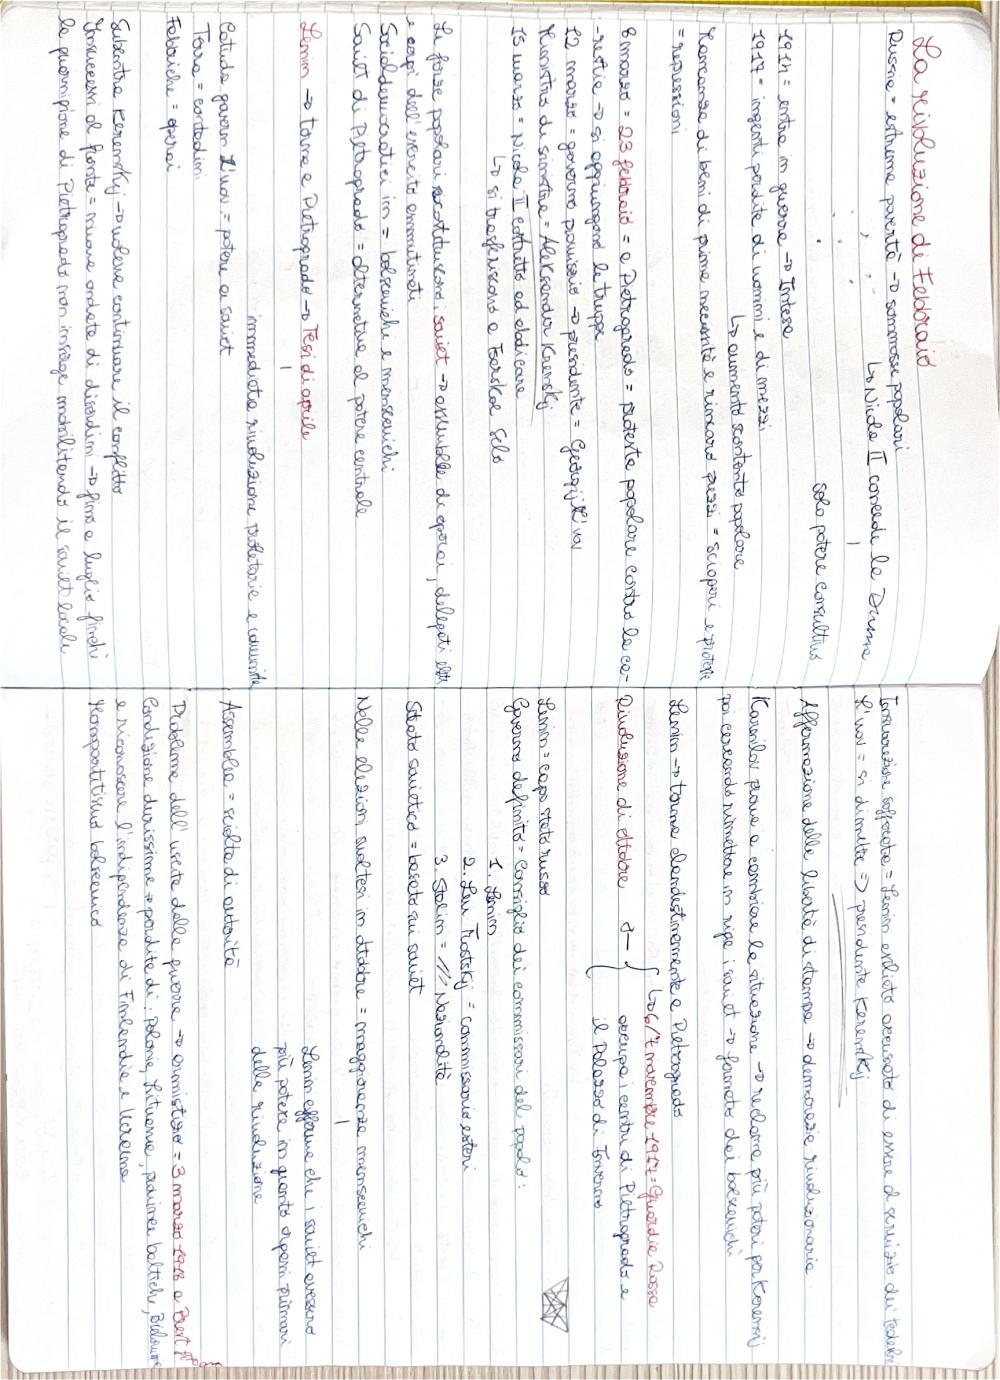 La rivoluzione di Febbraio
Russia = estrema povertà → sommosse popolari
↳ Nicola II concede la Duma
solo potere consultivo
1914 = entra in guerra → Intesa
1917 = ingenti perdite di uomini e di mezzi
↳ aumento scontento popolare
Mancanza di beni di prima necessità e rincaro prezzi = scioperi e proteste
= repressioni
8 marzo = 23 febbraio = a Pietrogrado = protesta popolare contro la ca-
-restia → si aggiungono le truppe
12 marzo = governo provvisorio → presidente = Georgij L'vov
Ministro di sinistra = Aleksandr Kerenskj
15 marzo = Nicola II costretto ad abdicare
↳ si trasferiscono a Tsarskoe Selo
Le forze popolari costituiscono i soviet → assemblee di operai, delegati eletti
e corpi dell'esercito ammutinati
Socialdemocratici in = bolscevichi e menscevichi
Soviet di Pietrogrado = alternativa al potere centrale
Lenin → torna a Pietrogrado → Tesi di aprile
immediata rivoluzione proletaria e comunista
Caduta governo L'vov = potere ai soviet
Terra = contadini
Fabbriche = operai
Subentra Kerenskj → voleva continuare il conflitto
Insuccessi al fronte = nuove ondate di disordini → fino a luglio finché
la guarnigione di Pietrogrado non insorge mobilitando il soviet locale
Insurrezione soffocata = Lenin esiliato accusato di essere al servizio dei tedeschi
L'vov = si dimette => presidente Kerenskj
Affermazione delle libertà di stampa → democrazia rivoluzionaria
Kornilov prova a cambiare la situazione → reclama più poteri per Kerenskj
poi cercando rimettere in riga i soviet → fermato dai bolscevichi
Lenin → torna clandestinamente a Pietrogrado
↳ 6/7 novembre 1917 = Guardie Rosse
Rivoluzione di ottobre
occupa i centri di Pietrogrado e
il Palazzo di Inverno
Lenin = capo stato russo
Governo definito = Consiglio dei commissari del popolo :
1. Lenin
2. Lev Trotskj = commissario esteri
3. Stalin = // Nazionalità
Stato sovietico = basato sui soviet
Nelle elezioni svoltesi in ottobre = maggioranza menscevichi
Lenin afferma che i soviet avessero
più potere in quanto organi primari
della rivoluzione
Assemblea = sciolta di autorità
Problema dell'uscita dalla guerra → armistizio = 3 marzo 1918 a Brest
Condizione durissime → perdite di : Polonia, Lituania, province baltiche, Bielorussia
e riconoscere l'indipendenza di Finlandia e Ucraina
Monopartitismo bolscevico